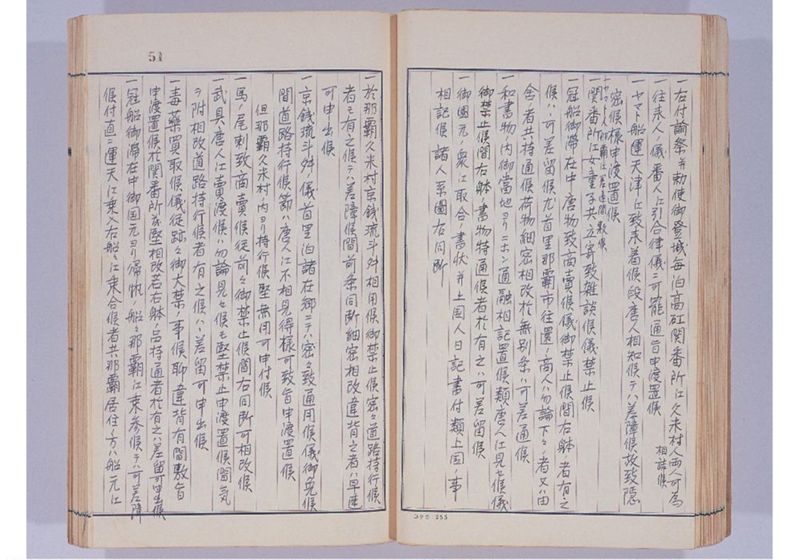 一右付諭祭并勅使御登城毎泊高矼関番所江久米村人両人可為
相詰候
一往来人ノ儀番人ニ引合律儀ニ可罷通旨申渡置候
一ヤマト船運天津ニ致来着候段唐人相知候テハ差障候故致隠
密候様申渡置候
一関番所江女童子共立寄致雑談候儀禁止候
一冠船御滞在中唐物致商売候儀御禁止候間右躰者有之
候ハヽ可差留候尤首里那覇市往還ノ商人ハ勿論下々ノ者又ハ田
舎者共持通候荷物細密相改於無別条ハ可差通候
一和書物内御当地ヨリニホン通融相記置候類唐人江見セ候儀
御禁止候間右躰ノ書物持通候者於有之ハ可差留候
一御国元ノ衆江取合ノ書状并上国人日記書付類上国ノ事
相記候諸人系図右同断
51
一於那覇久米村京銭琉斗舛相用候御禁止候密々道路持行候
者モ有之候テハ差障候間前条同断細密相改違背之者ハ早速
可申出候
一京銭琉斗舛ノ儀首里泊諸在郷ニテハ密々致通用候儀御免候
間道路持行候節ハ唐人江不相見得様可致旨申渡置候
但那覇久米村内ヨリ持行候堅無用可申付候
一馬ノ尾刺致商売候儀従前々御禁止候間右同断可相改候
一武具唐人江売渡候ハ勿論見セ候モ堅禁止申渡置候間気
ヲ附相改道路持行候者有之候ハヽ差留可申出候
一毒薬買取候儀従跡々御大禁ノ事候聊違背有間敷旨
申渡置候於関番所茂堅相改若右躰ノ品持通者於有之ハ差留可申出候
一冠船御滞在中御国元ヨリ帰帆ノ船々那覇江来参候テハ可差障
候付直ニ運天江乗入右船々江乗合候者共那覇居住ノ方ハ船元江
コクヨ 255